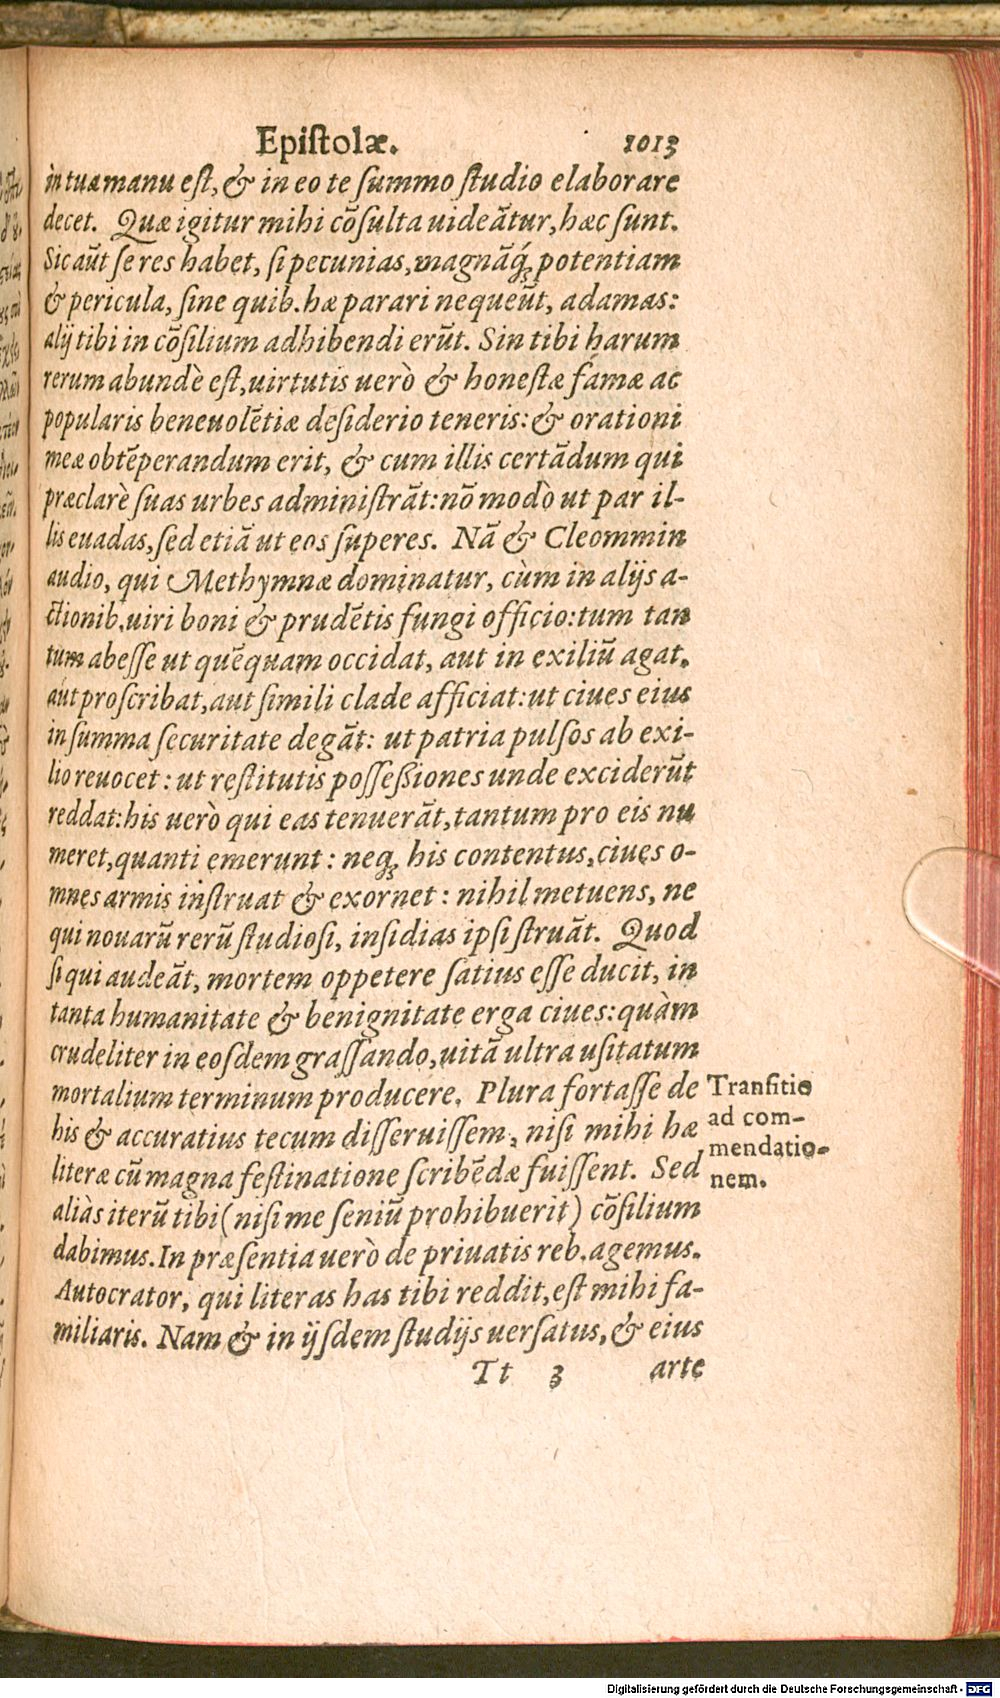 Epiſtolæ. 1013
in tua manu eſt, & in eo te ſummo ſtudio elaborare
decet. Quæ igitur mihi cõſulta uideãtur, hæc ſunt.
Sic aũt ſe res habet, ſi pecunias, magnãq́ꝫ potentiam
& pericula, ſine quib. hæ parari nequeũt, adamas:
alij tibi in cõſilium adhibendi erũt. Sin tibi harum
rerum abundè eſt, uirtutis uerò & honeſtæ famæ ac
popularis beneuolẽtiæ deſiderio teneris: & orationi
meæ obtẽperandum erit, & cum illis certãdum qui
præclarè ſuas urbes adminiſtrãt: nõ modò ut par il-
lis euadas, ſed etiã ut eos ſuperes. Nã & Cleommin
audio, qui Methymnæ dominatur, cùm in alijs a-
ctionib. uiri boni & prudẽtis fungi officio: tum tan
tum abeſſe ut quẽquam occidat, aut in exiliũ agat,
aut proſcribat, aut ſimili clade afficiat: ut ciues eius
in ſumma ſecuritate degãt: ut patria pulſos ab exi-
lio reuocet: ut reſtitutis poſſeſsiones unde exciderũt
reddat: his uerò qui eas tenuerãt, tantum pro eis nu
meret, quanti emerunt: neqꝫ his contentus, ciues o-
mnes armis inſtruat & exornet: nihil metuens, ne
qui nouarũ rerũ ſtudioſi, inſidias ipſi ſtruãt. Quod
ſi qui audeãt, mortem oppetere ſatius eſſe ducit, in
tanta humanitate & benignitate erga ciues: quàm
crudeliter in eoſdem graſſando, uitã ultra uſitatum
mortalium terminum producere. Plura fortaſſe de
his & accuratius tecum diſſeruiſſem, niſi mihi hæ
literæ cũ magna feſtinatione ſcribẽdæ fuiſſent. Sed
aliàs iterũ tibi (niſi me ſeniũ prohibuerit) cõſilium
dabimus. In præſentia uerò de priuatis reb. agemus.
Autocrator, qui literas has tibi reddit, eſt mihi fa-
miliaris. Nam & in ijſdem ſtudijs uerſatus, & eius
Tt 3 arte
Tranſitio
ad com-
mendatio-
nem.
Digitalisierung gefördert durch die Deutsche Forschungsgemeinschaft - DFG